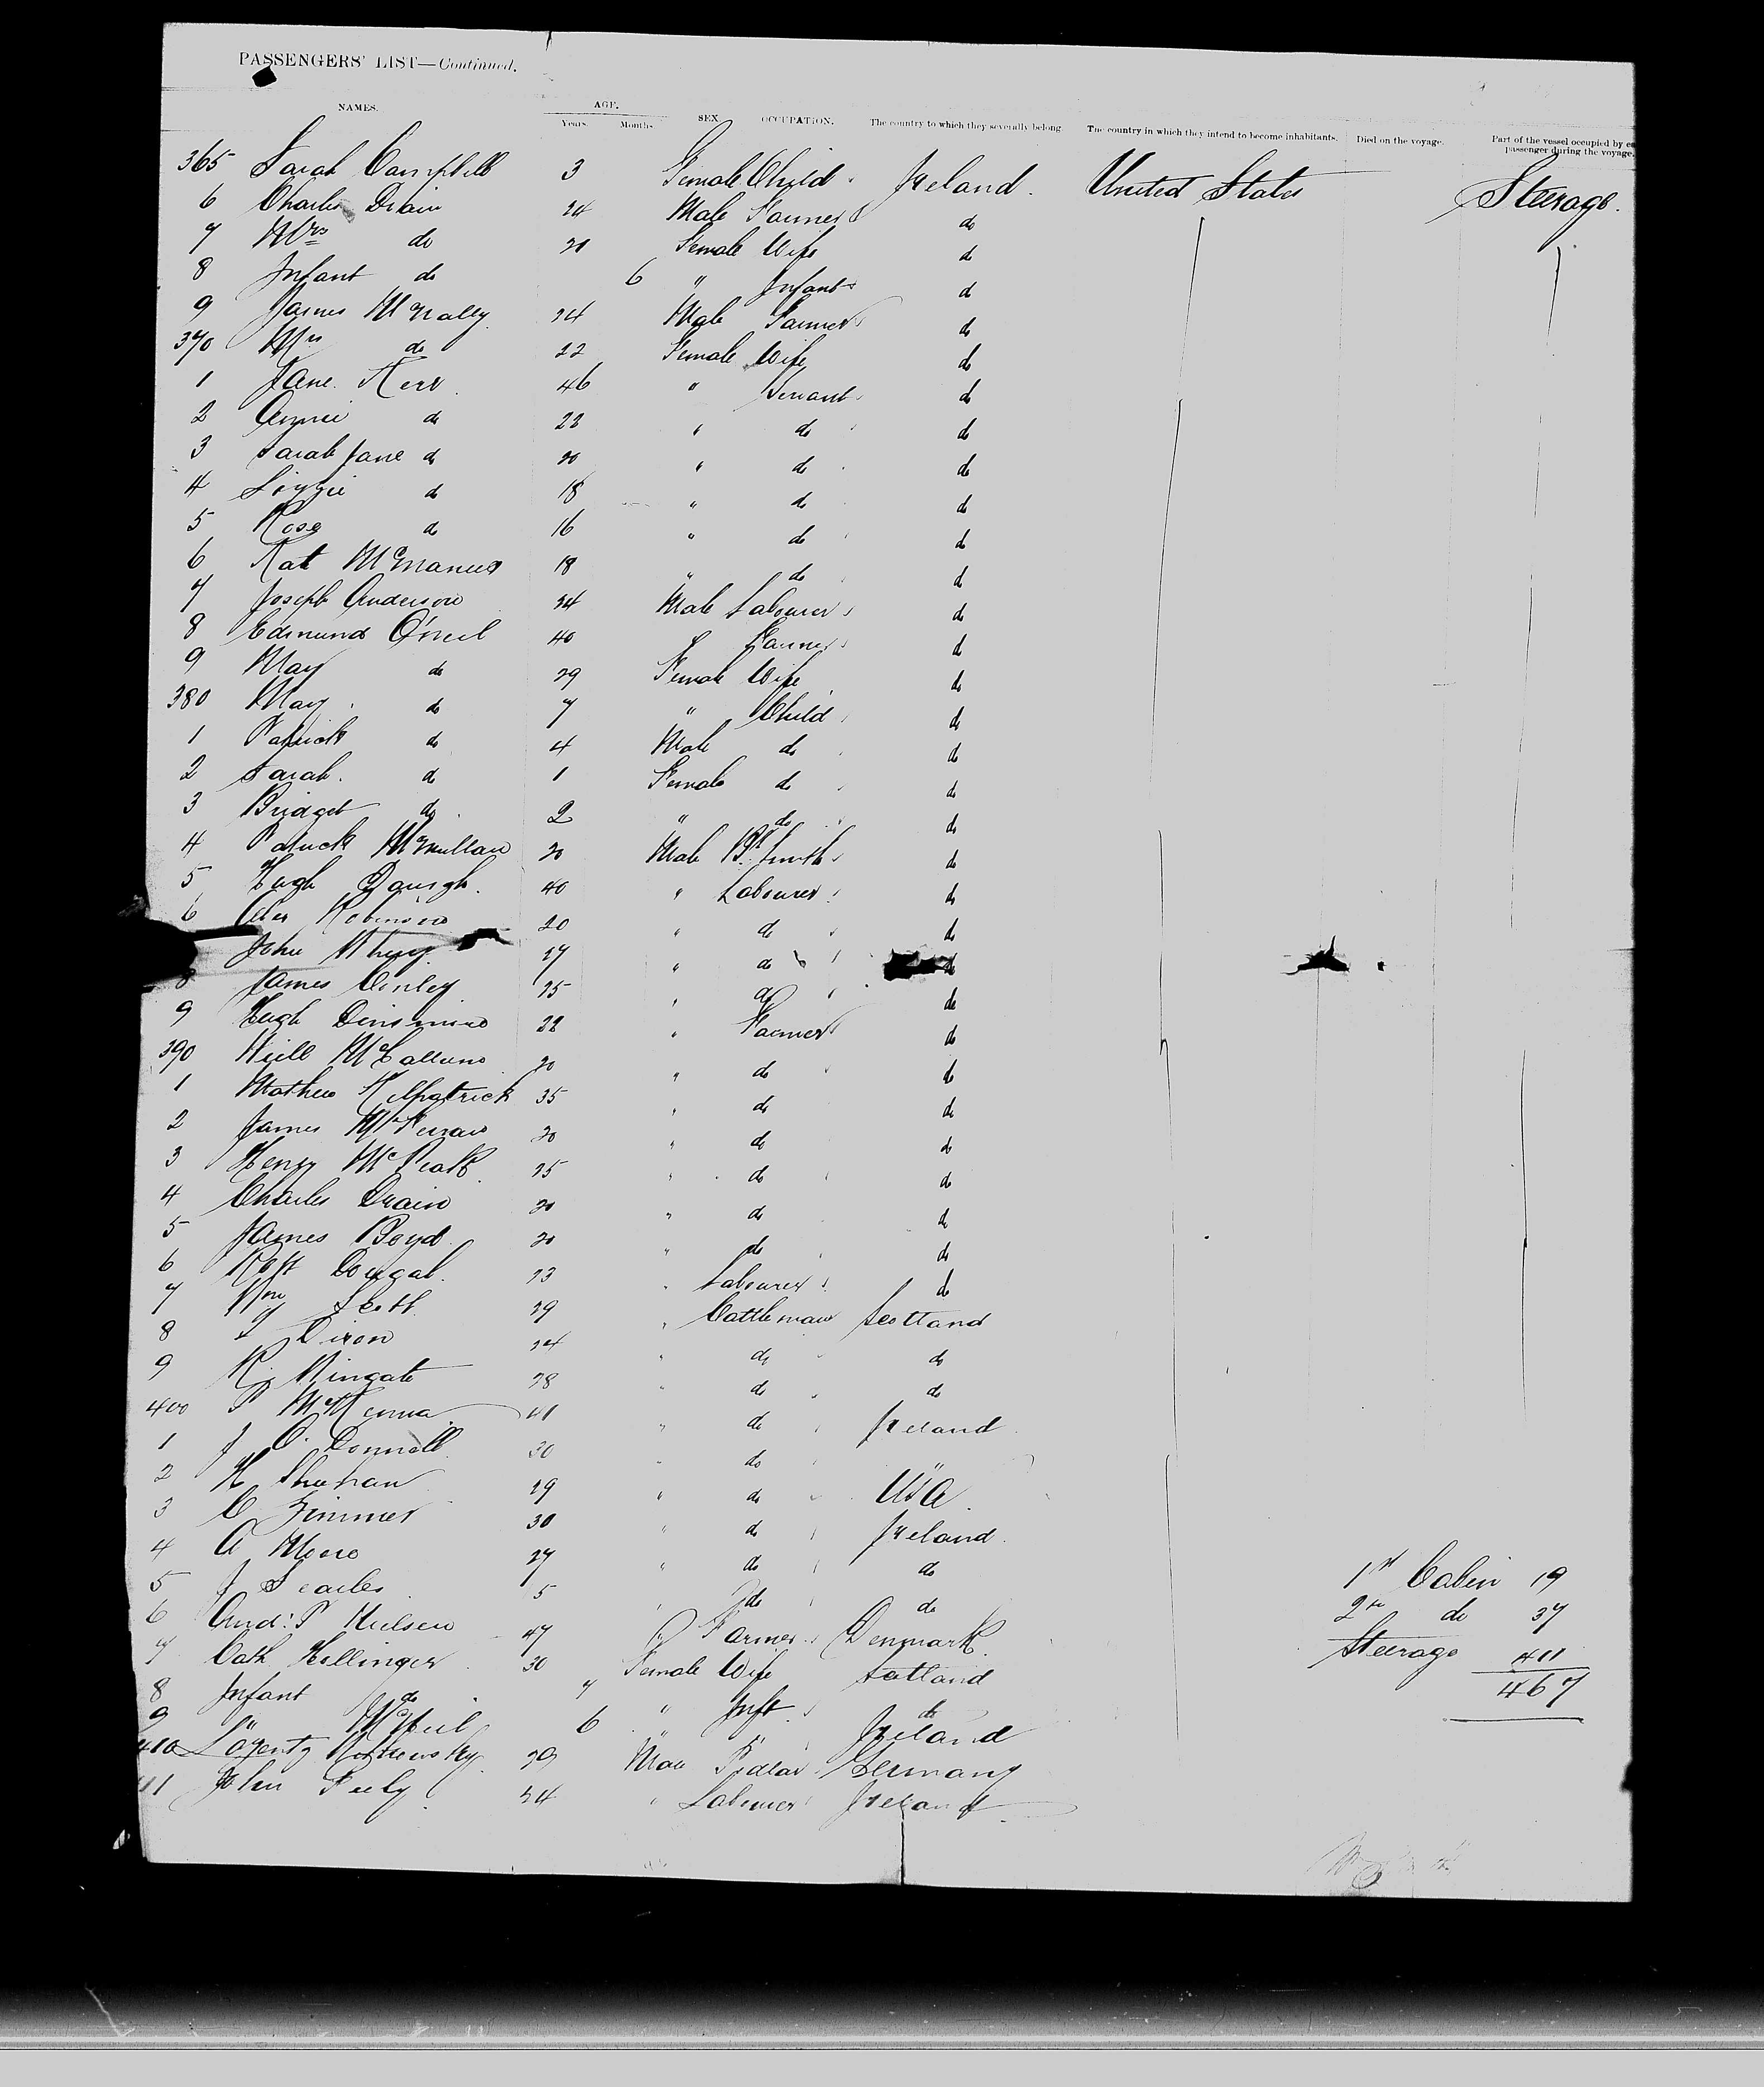 PASSENGERS' LIST—Continued.
NAMES. AGE. Years. Months. SEX. OCCUPATION. The country to which they severally belong. The country in which they intend to become inhabitants. Died on the voyage. Part of the vessel occupied by ea passenger during the voyage.
365 Sarah Campbell 3 Female Child Ireland. United States Steerage.
6 Charles Drain 24 Male Farmer do
7 Mrs do 20 Female Wife do
8 Infant do 6 " Infant do
9 James McNally 24 Male Farmer do
370 Mrs do 22 Female Wife do
1 Jane Kerr 46 " Servant do
2 Annie do 22 " do do
3 Sarah Jane do 20 " do do
4 Lizzie do 18 " do do
5 Rose do 16 " do do
6 Kat McManus 18 " do do
7 Joseph Anderson 34 Male Labourer do
8 Edmund O'Neil 40 " Farmer do
9 Mary do 29 Female Wife do
380 Mary do 7 " Child do
1 Patrick do 4 Male do do
2 Sarah do 1 Female do do
3 Bridget do 2 " do do
4 Patrick McMullan 20 Male Bl. Smith do
5 Hugh 40 " Labourer do
6 Robinson 20 " do do
John 27 " do do
8 James Conley 25 " do do
9 Hugh Dinsmore 22 " Farmer do
390 Neill McCallum 20 " do do
1 Mathew Kilpatrick 35 " do do
2 James McFerran 20 " do do
3 Henry McPeak 25 " do do
4 Charles Drain 20 " do do
5 James Boyd 20 " do do
6 Robt Dougal 23 " Labourer do
7 Wm Scott 29 " Cattleman Scotland
8 Dixon 24 " do do
9 R. Wingate 28 " do do
400 P McKenna 41 " do Ireland
1 J O. Donnell 30 " do "
2 H Sheehan 29 " do USA
3 C Zimmer 30 " do Ireland
4 A Moore 27 " do do
5 J Searles 5 " do do
6 And: P Nielsen 47 " Farmer Denmark
7 Cath Hollinger 30 Female Wife Scotland
8 Infant do 7 " Inft do
9 " McNeil 6 " " Ireland
410 29 Male Pedlar Germany
411 John 24 " Labourer Ireland
1st Cabin 19
2nd do 37
Steerage 411
467